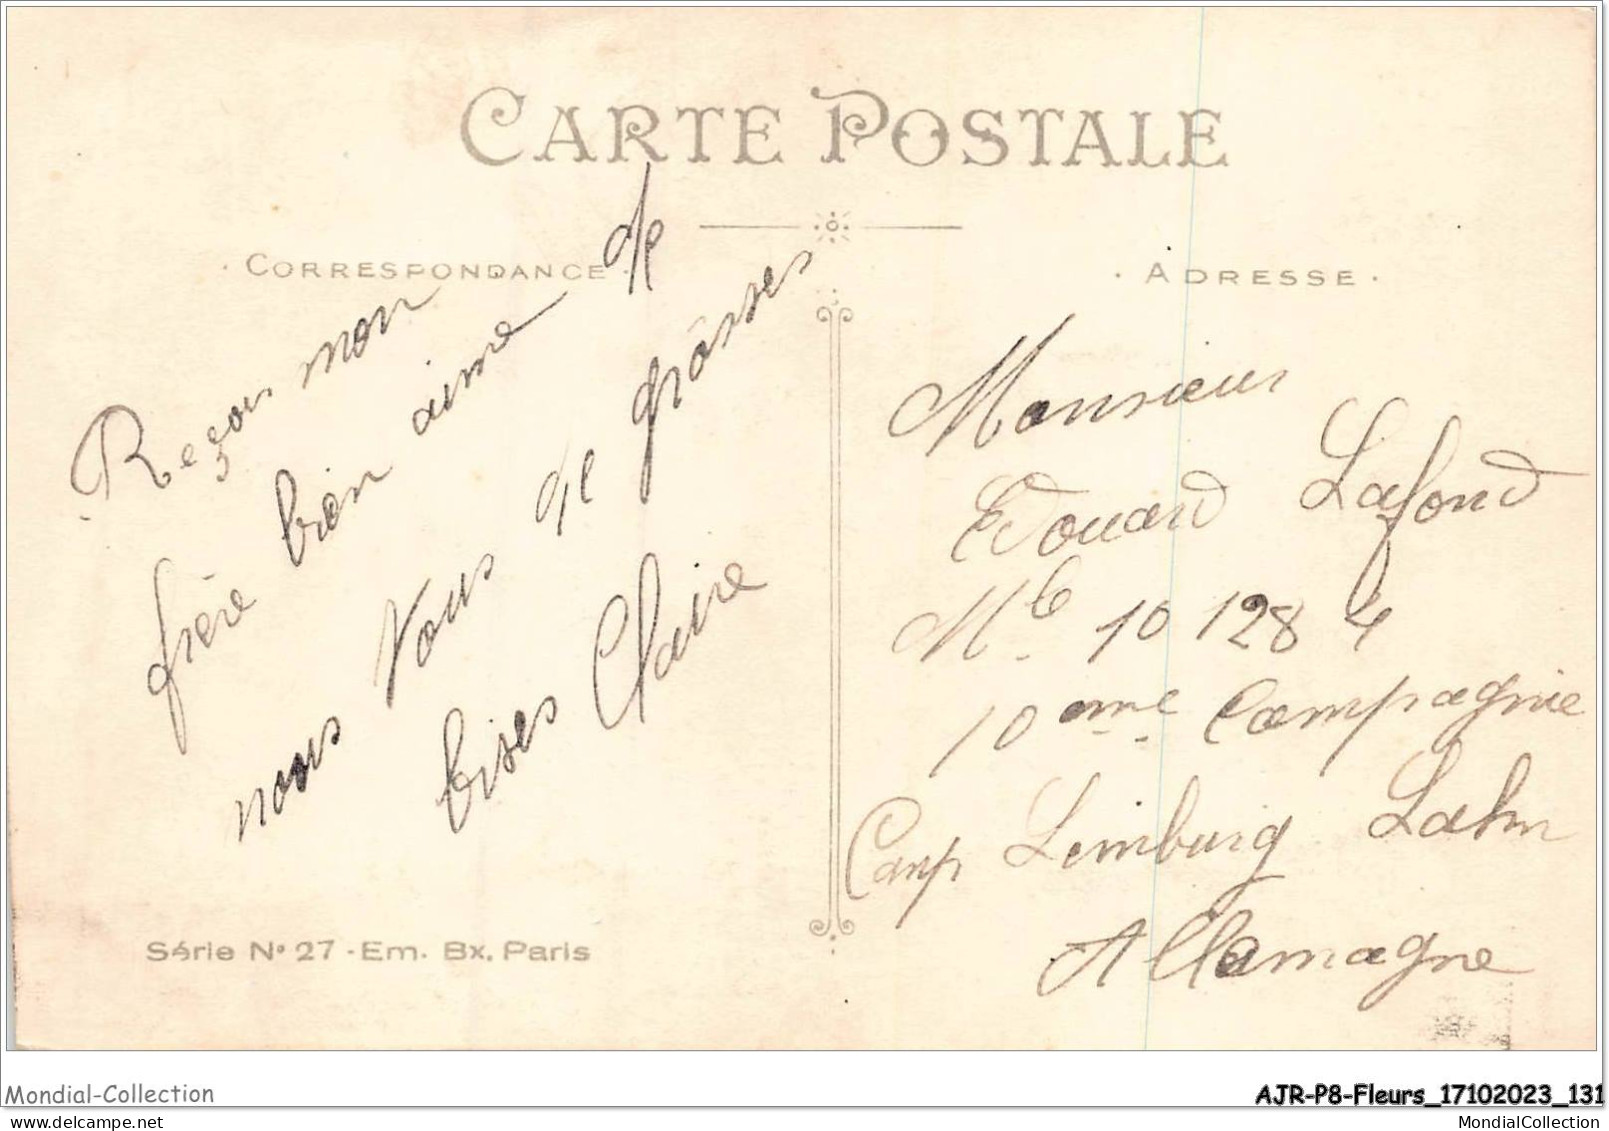 CARTE POSTALE
· CORRESPONDANCE ·
· ADRESSE ·
Reçois mon
frère bien aimé de
nous Vous de grôsses
bises Claire
Monsieur
Edouard Lafond
Mle 10 128 4
10 eme Compagnie
Camp Limburg Lahn
Allemagne
Série No 27 - Em. Bx. Paris
Mondial-Collection
AJR-P8-Fleurs_17102023_131
www.delcampe.net
MondialCollection